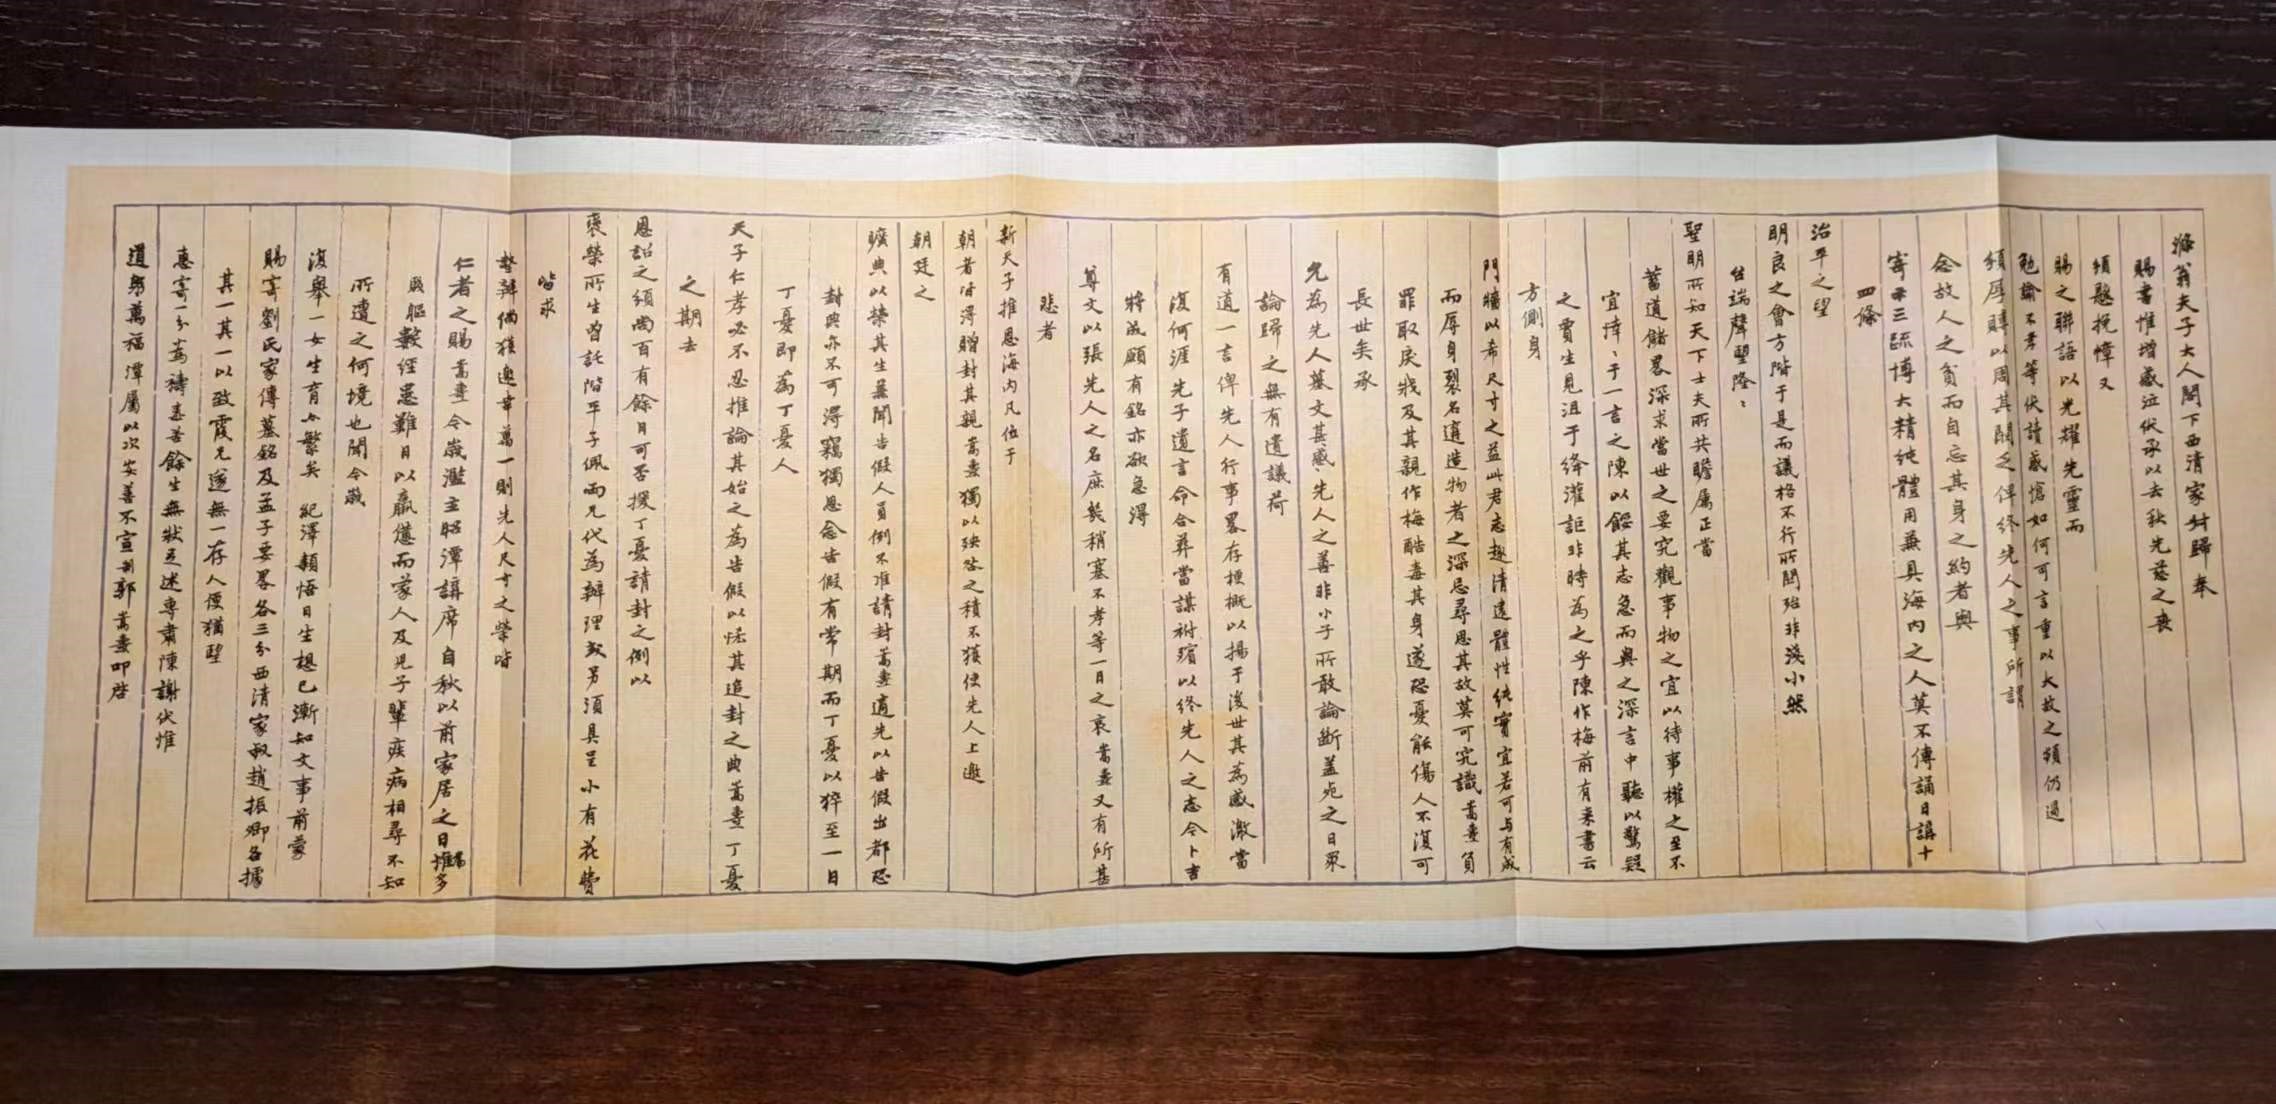 滌翁夫子大人閣下西清家叔歸奉
賜書惟增感泣伏承以去秋先慈之喪
頒懸挽幛又
賜之聯語以光耀先靈而
勉諭不孝等伏讀感愴如何可言重以大故之頻仍過
頒厚賻以周其闕乏俾終先人之事所謂
念故人之貧而自忘其身之約者與
寄示三疏博大精純體用兼具海內之人莫不傳誦日講十
四條
治平之望
明良之會方階于是而議格不行所關殆非淺小然
台端聲望隆隆
聖明所知天下士夫所共瞻屬正當
蓄道儲畧深求當世之要究觀事物之宜以待事權之至不
宜悻悻于一言之陳以餒其志急而與之深言中聽以驚疑
之賈生見沮于絳灌詎非時為之乎陳作梅前有來書云
方側身
門牆以希尺寸之益此君志趣清遠體性純實宜若可與有成
而辱身裂名適造物者之深忌尋思其故莫可究識嵩燾負
罪取戾戕及其親作梅酷毒其身遂恐憂能傷人不復可
長世矣承
允為先人墓文甚感先人之善非小子所敢論斷蓋宛之日眾
論歸之無有遺議荷
有道一言俾先人行事畧存梗概以揚于後世其為感激當
復何涯先子遺言命合葬當謀祔殯以終先人之志今卜吉
將成願有銘亦欲急得
尊文以張先人之名庶幾稍塞不孝等一日之哀嵩燾又有所甚
悲者
新天子推恩海內凡位于
朝者皆得贈封其親嵩燾獨以殃咎之積不獲使先人上邀
朝廷之
曠典以榮其生兼聞告假人員例不准請封嵩燾適先以告假出都恐
封典亦不可得竊獨思念告假有常期而丁憂以猝至一日
丁憂即為丁憂人
天子仁孝必不忍推論其始之為告假以恡其追封之典嵩燾丁憂
之期去
恩詔之頒尚百有餘日可否援丁憂請封之例以
褒榮所生曾託階平子佩兩兄代為辦理或另須具呈小有花費
皆求
墊辦倘獲邀幸萬一則先人尺寸之榮皆
仁者之賜嵩燾今歲濫主昭潭講席自秋以前家居之日為多
惟賤軀數經患難日以羸憊而家人及兒子輩疾病相尋不知
所遭之何境也聞今歲
復舉一女生育亦繁矣 紀澤穎悟日生想已漸知文事前蒙
賜寄劉氏家傳墓銘及孟子要畧各三分西清家叔趙振卿各攜
其一其一以致霞兄遂無一存人便猶望
惠寄一分為禱嵩燾餘生無狀不述專肅陳謝伏惟
道躬萬福 潭屬以次安善不宣 制郭嵩燾叩啓